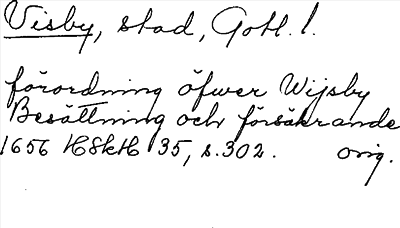 Visby, stad, Gotl. l.
förordning öfwer Wijsby
Besättning och försäkrande
1656 HSkH 35, s. 302. orig.